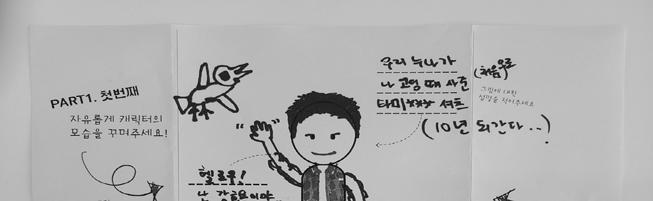 PART1. 첫번째
자유롭게 캐릭터의
모습을 꾸며주세요!
헬로우!
우리 누나가
나 고딩 때 사준
(처음으로)
타미 셔츠
(10년 되간다..)
그림에 대한
설명을 적어주세요